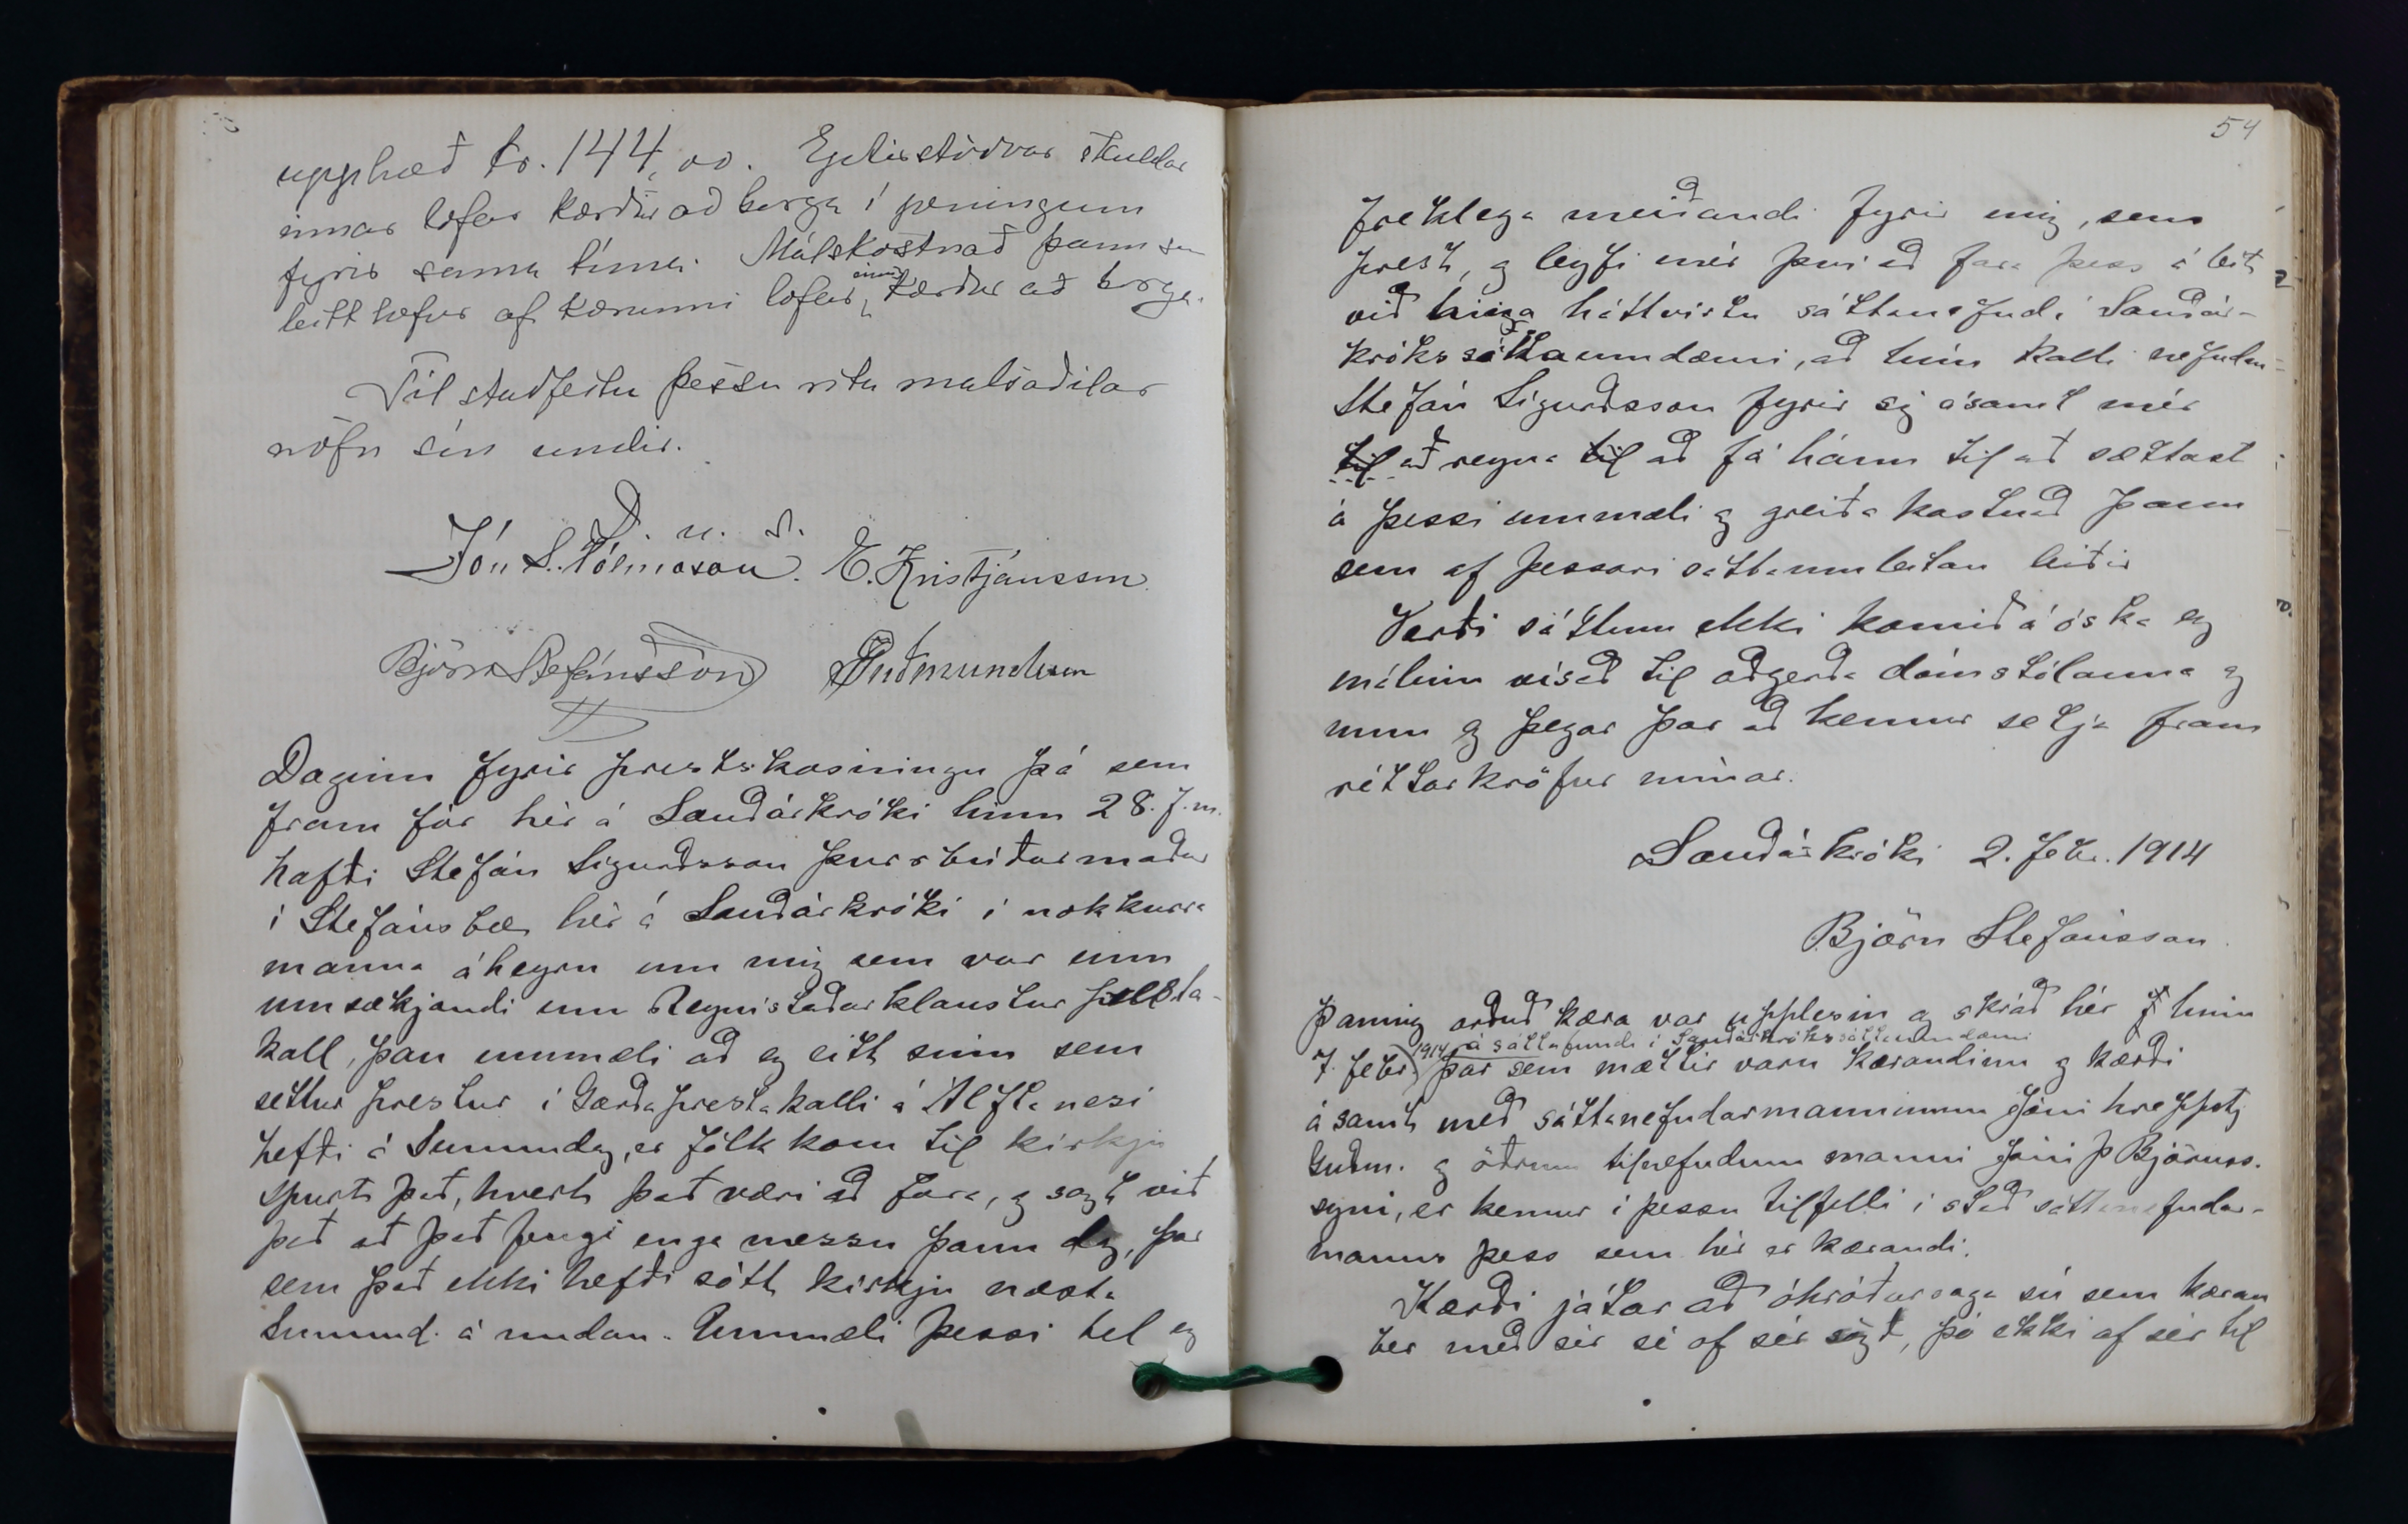 upphæð kr. 144,00. Eptirstöðvar skuldar
innar lofar kærður að borga í peningum
fyrir sama tíma. Málskostnað þann sem
leitt hefur af kærunni lofar einnig kærður að borga.
Til staðfestu þessu rita málsaðilar
nöfn sín undir.
D. u. s.
Jón S. Tólmason. E. Kristjánsson
Björn Stefánsson Guðmundsson
Daginn fyrir prestskosningu þá sem
fram fór hér á Sauðárkróki hinn 28. f. m.
hafði Stefán Sigurðsson þurrabúðarmaður
í Stefánsbæ hér á Sauðárkróki í nokkurra
manna áheyrn um mig sem var einn
umsækjandi um Reynistaðarklaustur presta-
kall, þau ummæli að eg eitt sinn sem
settur prestur í Garðaprestakalli á Álftanesi
hefði á Sunnudag, er fólk kom til kirkju
spurt það, hvert það væri að fara, og sagt við
það að það fengi enga messu þann dag, þar
sem það ekki hefði sótt kirkju næsta
Sunnud. á undan. Ummæli þessi tel eg
54
freklega meiðandi fyrir mig, sem
prest, og leyfi mér því að fara þess á leit
við hina háttvirtu sáttanefnd í Sauðár-
króks sáttaumdæmi, að hún kalli nefndan
Stefán Sigurðsson fyrir sig ásamt mér
til að reyna til að fá hann til að sættast
á þessi ummæli og greiða kostnað þann
sem af þessari sáttaumleitan leiðir
Verði sáttum ekki komið á óska eg
málinu vísað til aðgerða dómstólanna og
mun eg þegar þar að kemur setja fram
réttarkröfur mínar.
Sauðárkróki 2. febr. 1914
Björn Stefánsson.
Þannig orðuð kæra var upplesin og skráð hér hinn
1914 á sáttafundi í Sauðárkrókssáttaumdæmi
7. febr. þar sem mættir voru kærandinn og kærði
ásamt með sáttanefndarmanninum Jóni hreppstj
Guðm. og öðrum tilnefndum manni Jóni Þ Björnss.
syni, er kemur í þessu tilfelli í stað sáttanefndar-
manns þess sem hér er kærandi.
Kærði játar að óhróðursaga sú sem kæran
ber með sér sé af sér sögð, þó ekki af sér til